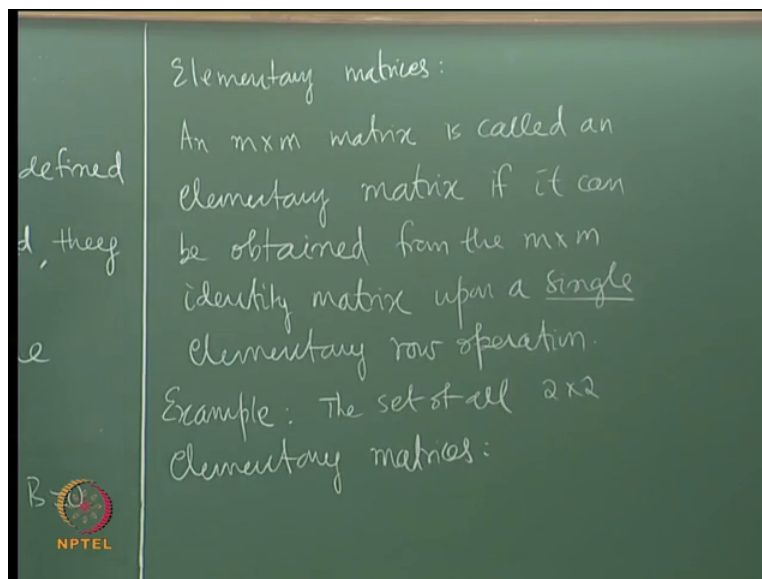 defined
d, they
e
B=0
Elementary matrices:
An m×m matrix is called an
elementary matrix if it can
be obtained from the m×m
identity matrix upon a single
elementary row operation.
Example: The set of all 2×2
elementary matrices:
NPTEL